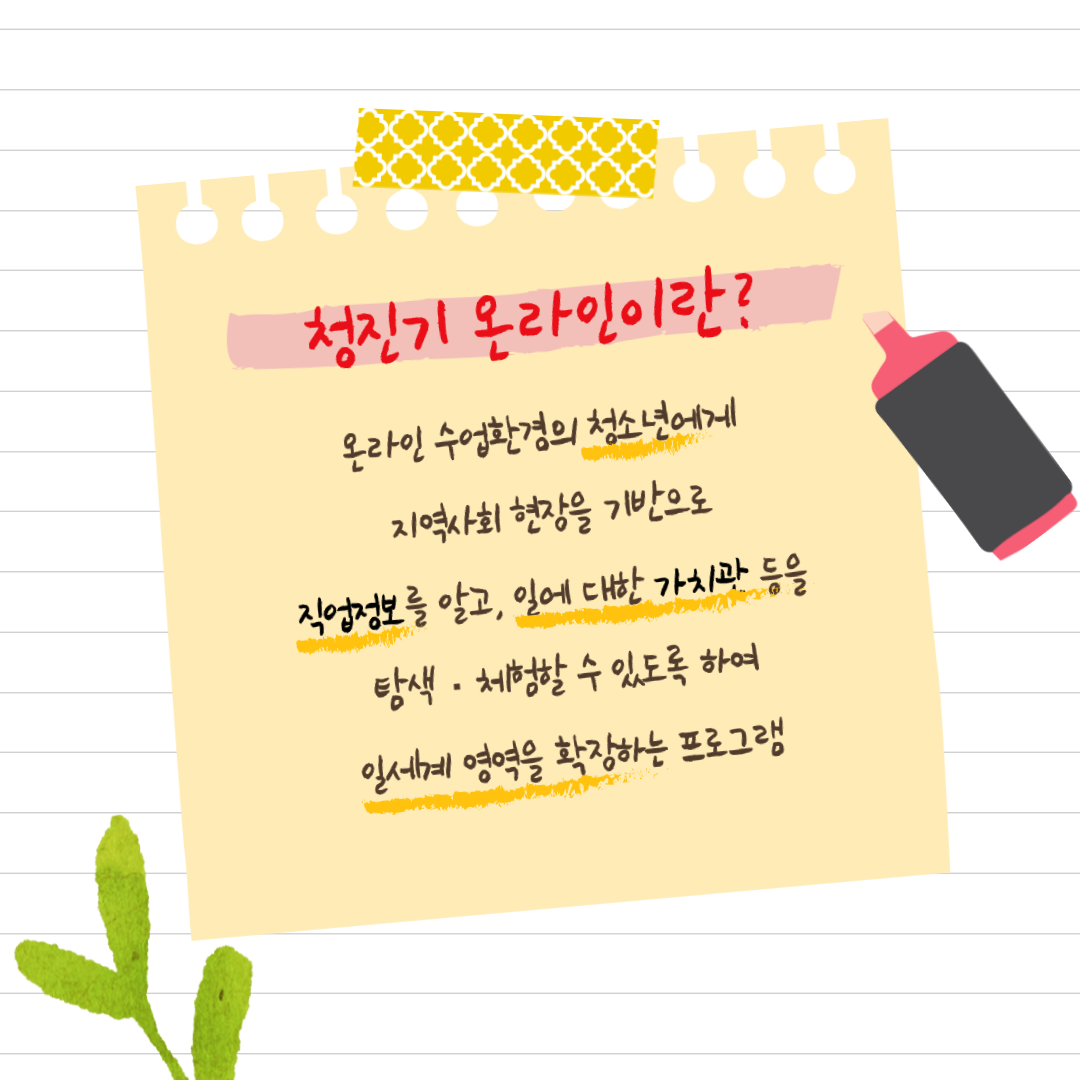 청진기 온라인이란?
온라인 수업환경의 청소년에게
지역사회 현장을 기반으로
직업정보를 알고, 일에 대한 가치관 등을
탐색 · 체험할 수 있도록 하여
일세계 영역을 확장하는 프로그램